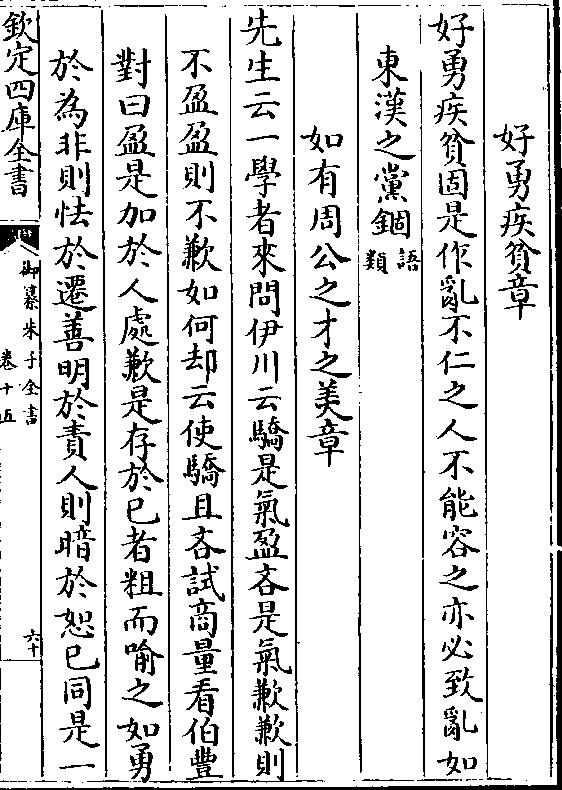 好勇疾貧章
好勇疾貧固是作亂不仁之人不能容之亦必致亂如
東漢之黨錮
語
類
如有周公之才之美章
先生云一學者來問伊川云驕是氣盈吝是氣歉歉則
不盈盈則不歉如何却云使驕且吝試商量看伯豐
對曰盈是加於人處歉是存於已者粗而喻之如勇
於為非則怯於遷善明於責人則暗於恕已同是一
欽定四庫全書
御纂朱子全書
卷十五
六十